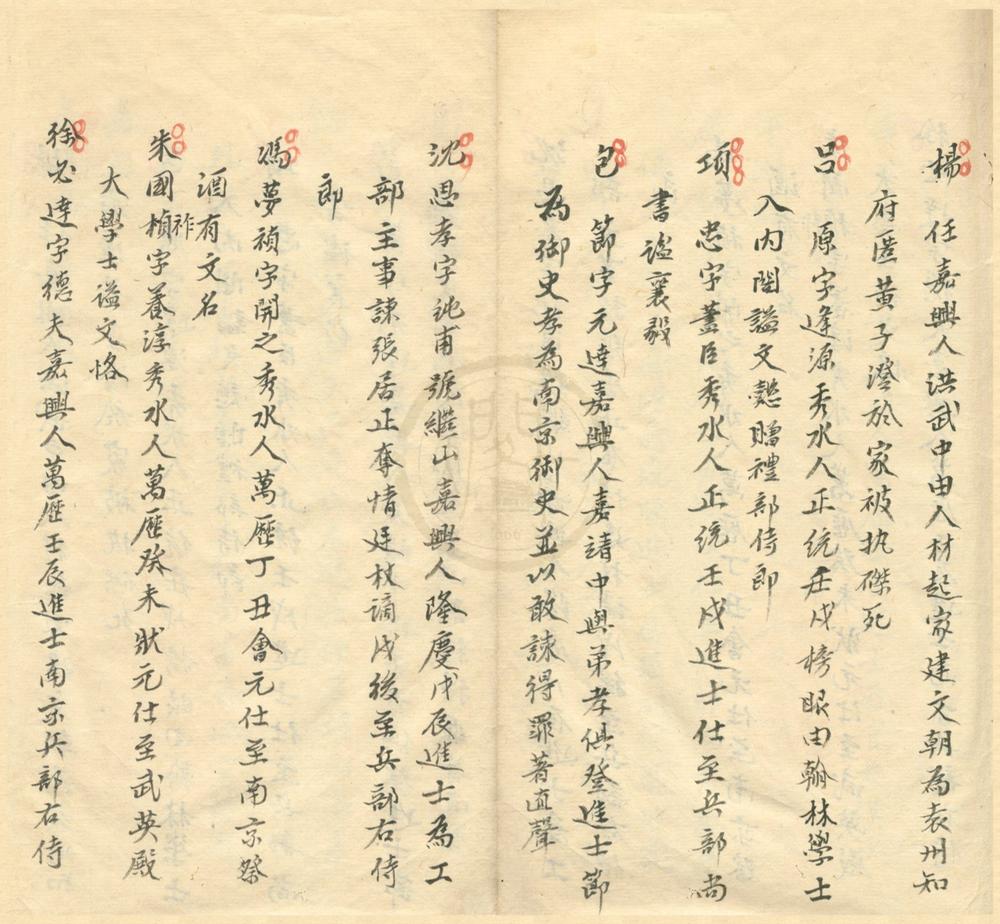 楊　任嘉興人洪武中由人材起家建文朝為袁州知
府匿黃子澄於家被执磔死
吕　原字逢源秀水人正统壬戌榜眼由翰林學士
入内閣謚文懿贈禮部侍郎
項　忠字藎臣秀水人正统壬戌進士仕至兵部尚
書謚襄毅
包　節字元達嘉興人嘉靖中與弟孝俱登進士節
為御史孝為南京御史並以敢諫得罪著直聲
沈思孝字純甫號繼山嘉興人隆慶戊辰進士為工
部主事諫張居正奪情廷杖謫戍後至兵部右侍
郎
馮夢禎字開之秀水人萬歷丁丑會元仕至南京祭
酒有文名
朱國楨祚字養淳秀水人萬歷癸未狀元仕至武英殿
大學士謚文恪
徐必達字德夫嘉興人萬歷壬辰進士南京兵部右侍